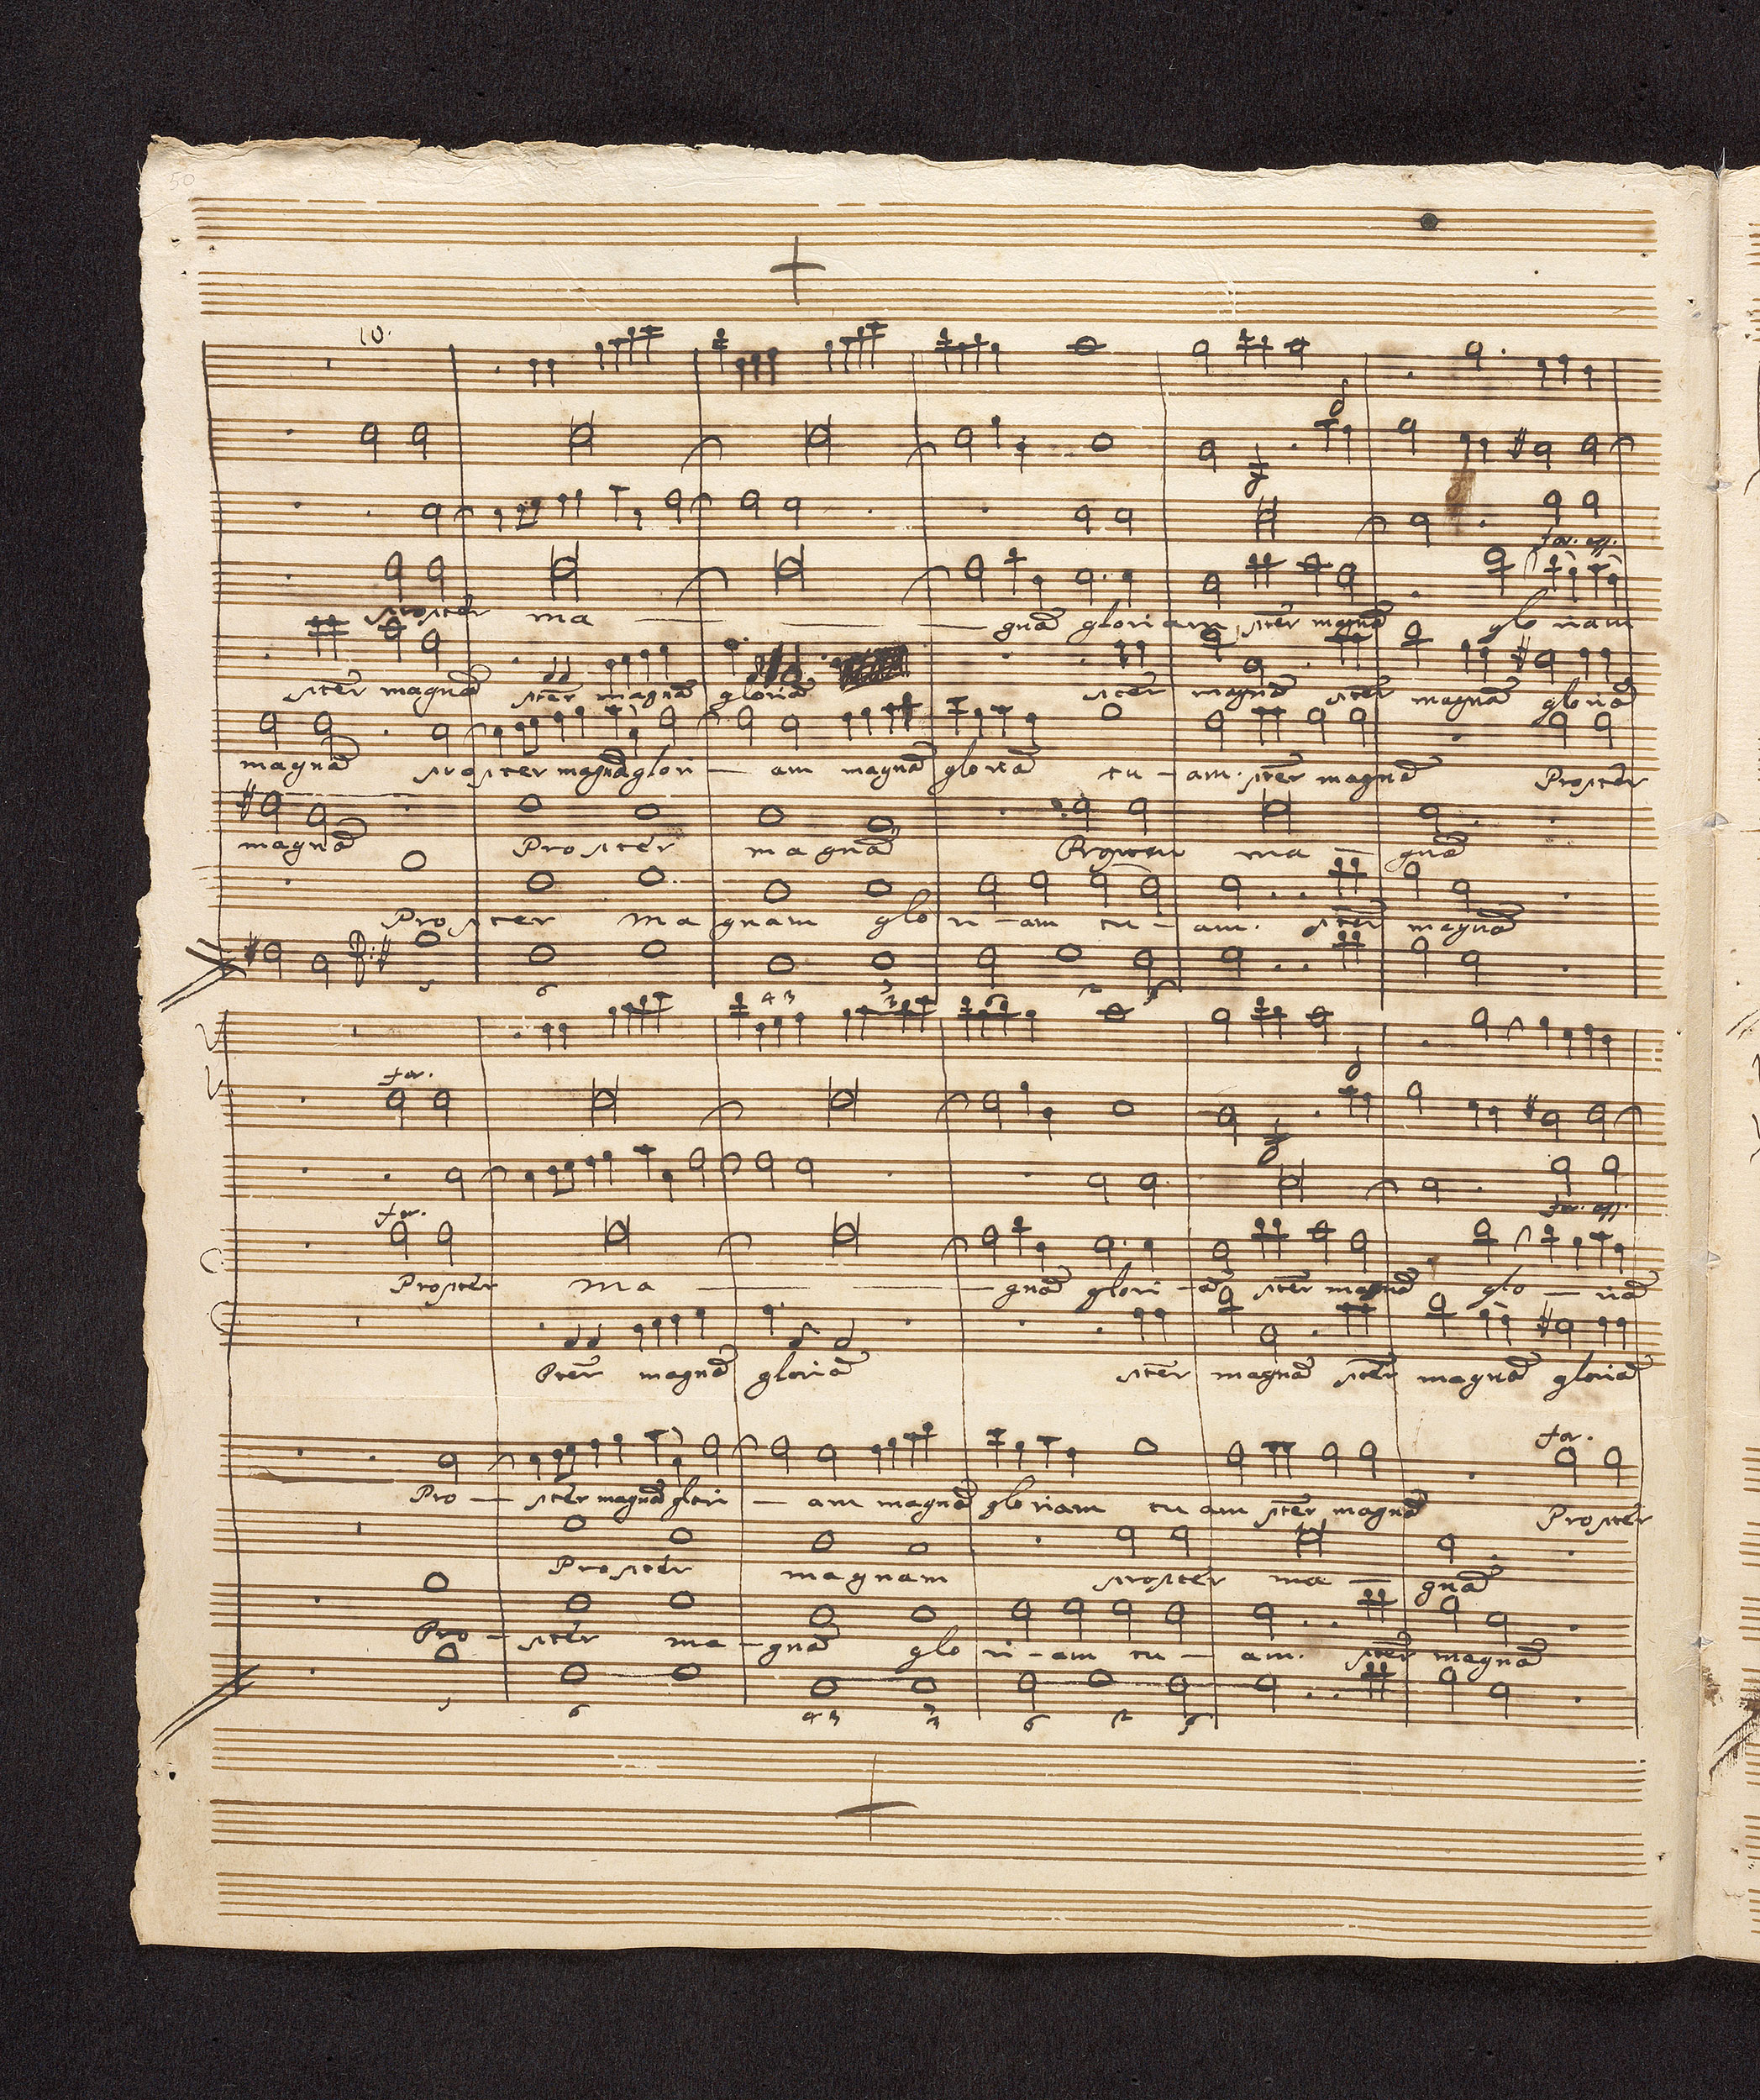 50
10.
for. aff.
propter ma — gnã gloriam pter magnã glo riam
pter magnã pter magnã gloriã pter magnã pter magnã gloriã
magnã propter magnã glori — am magnã gloriã tu — am. pter magnã Propter
magnã Propter magnã Propter ma — gnã
Propter ma gnam glo ri — am tu — am. pter magnã
5 6 4 3 6
for.
for. for. aff.
Propter ma — gnã glori — ã pter magnã glo — riã
Pter magnã gloriã pter magnã pter magnã gloriã
for.
Pro — pter magnã glori — am magnã gloriam tu am pter magnã Propter
Propter magnam propter ma — gnã
Pro — pter ma — gnã glo ri — am tu — am. pter magnã
5 6 4 3 6